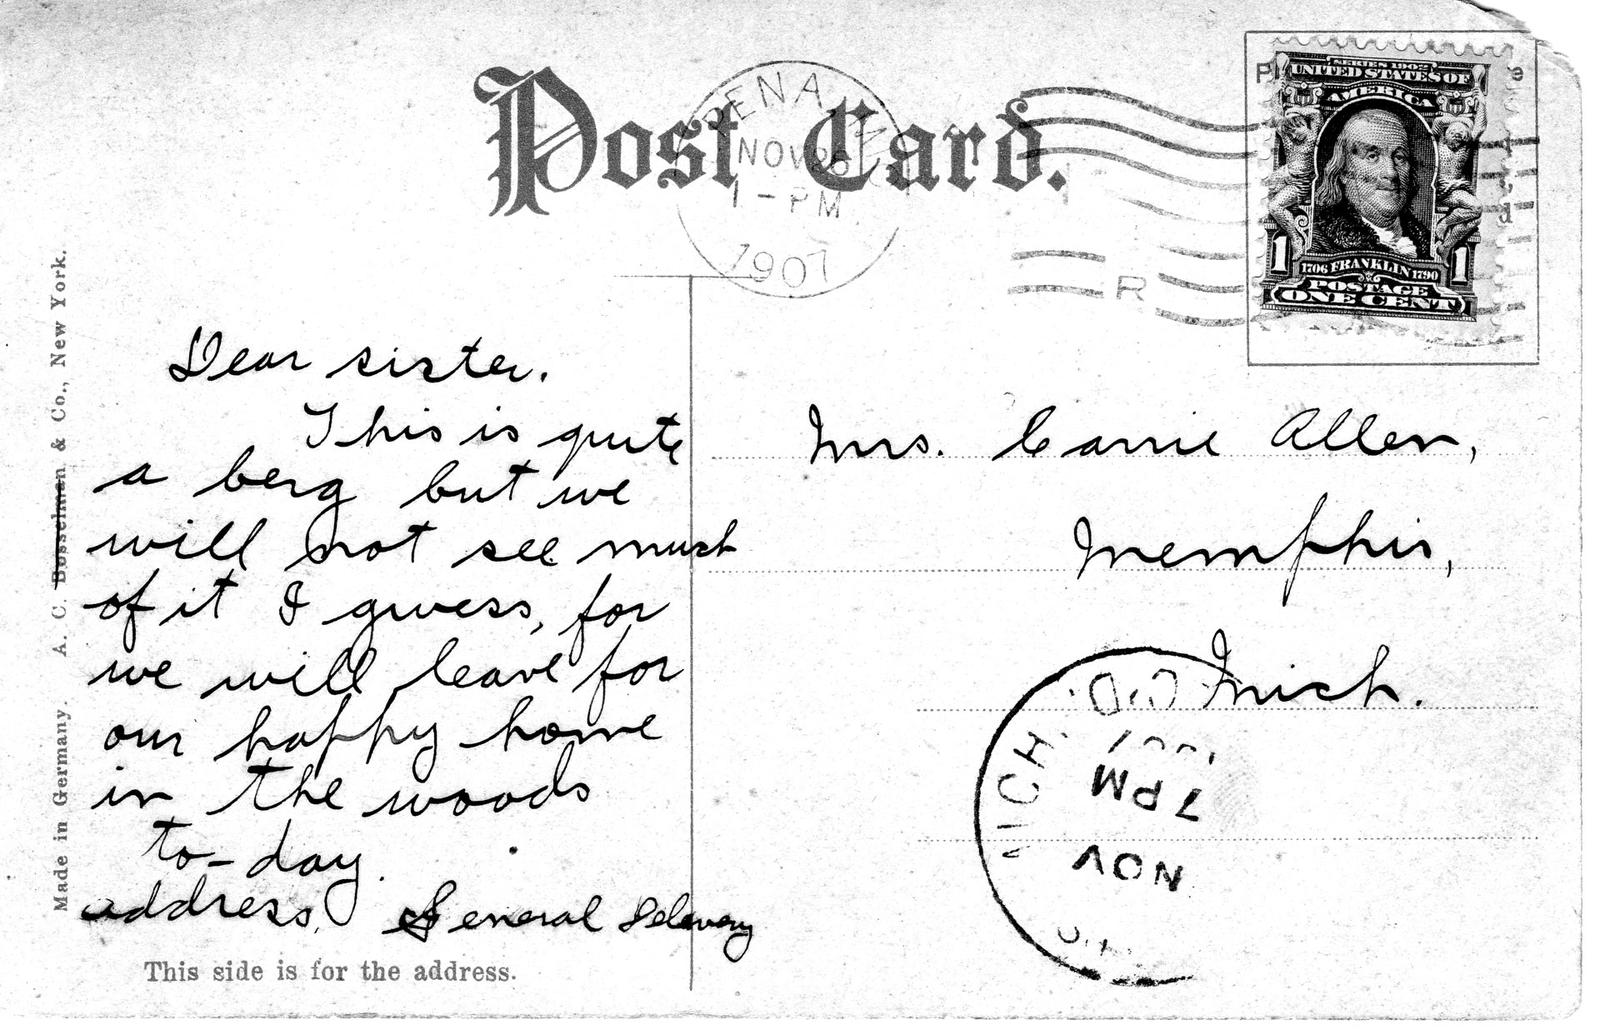 Post Card.
PENA
NOV 26
1 - PM
1907
R
SERIES 1902
UNITED STATES OF
AMERICA
1 1706 FRANKLIN 1790 1
POSTAGE
ONE CENT
Dear sister.
This is quite
a berg but we
will not see much
of it I guess, for
we will leave for
our happy home
in the woods
to-day.
address. General Delevery
Mrs. Carrie Allen,
Memphis,
Mich.
MICH.
7 PM
NOV
This side is for the address.
Made in Germany. A. C. Bosselman & Co., New York.